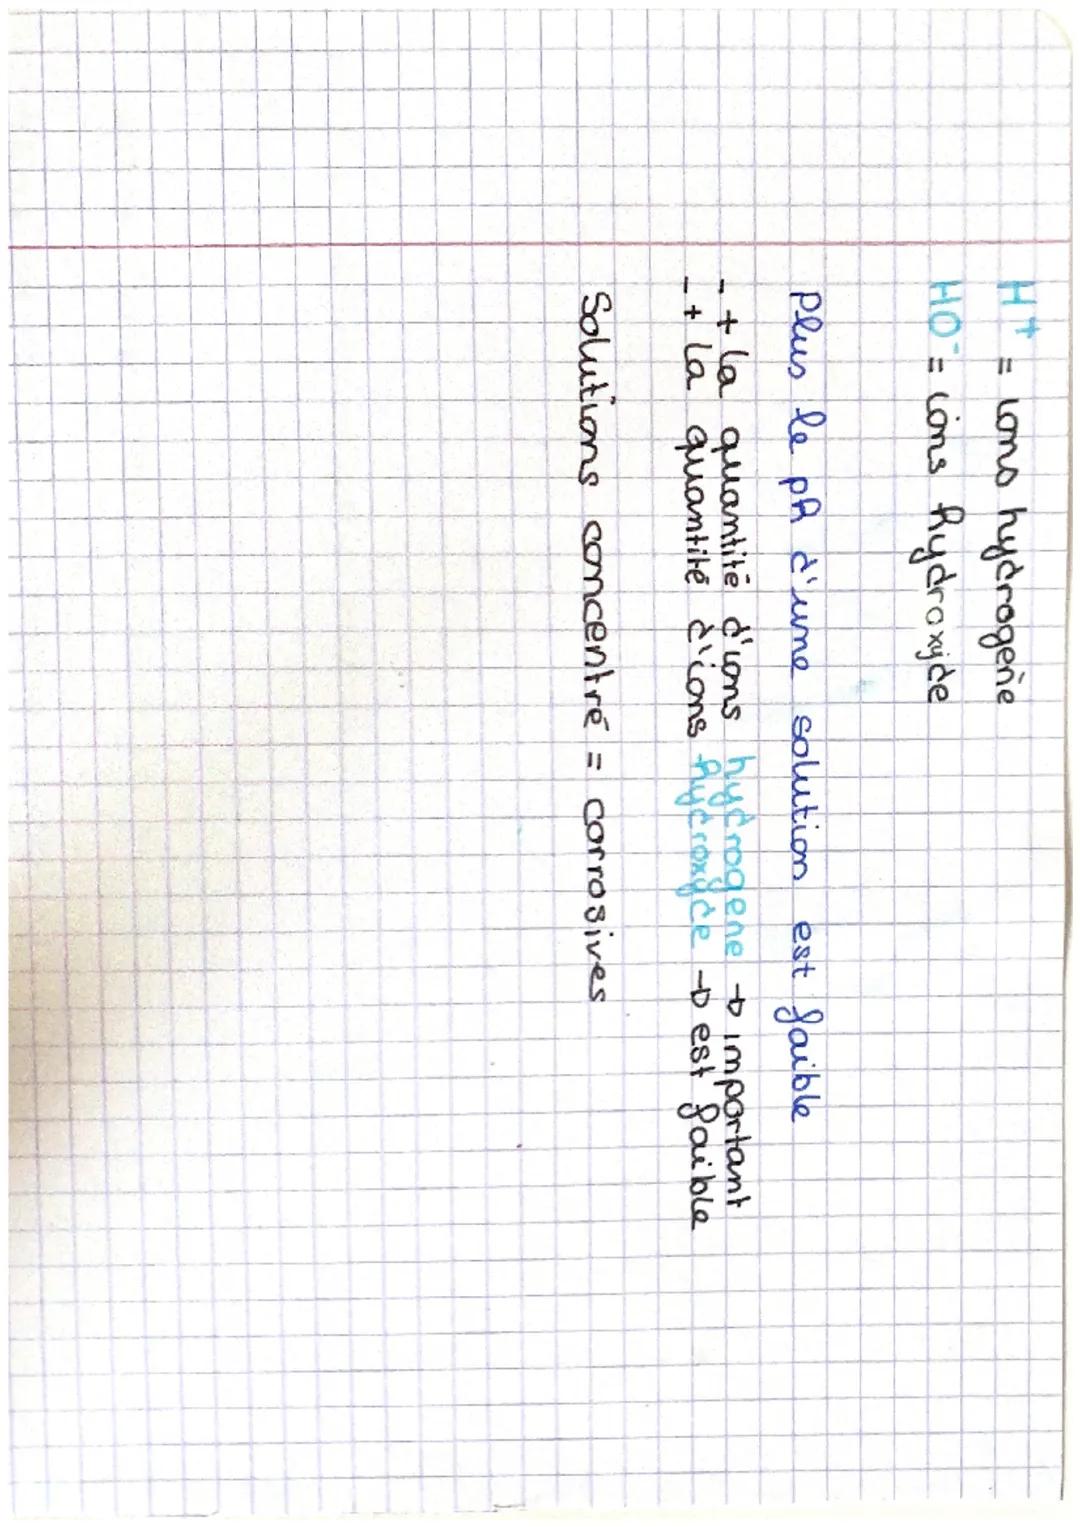 H+ = ions hydrogène
HO- = ions hydroxyde
Plus le pH d'une solution est faible
- + la quantité d'ions hydrogene → important
- + la quantité d'ions hydroxyde → est faible
Solutions concentré = corrosives